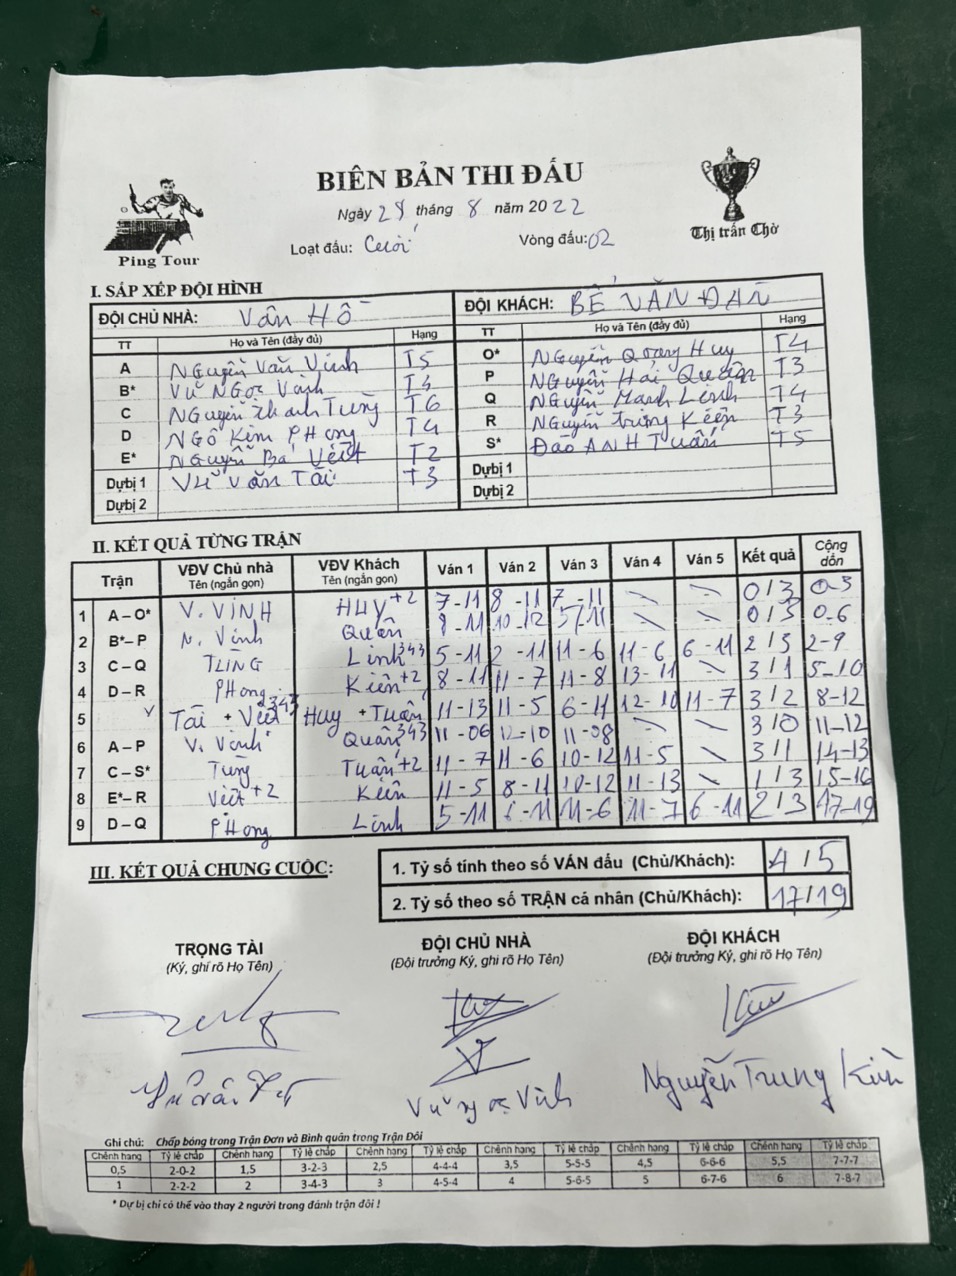 BIÊN BẢN THI ĐẤU
Ngày 28 tháng 8 năm 2022
Loạt đấu: Cuối Vòng đấu: 02
Ping Tour
Thị trấn Chờ
I. SẮP XẾP ĐỘI HÌNH
ĐỘI CHỦ NHÀ: Vân Hồ ĐỘI KHÁCH: BẾ VĂN ĐÀN
TT Họ và Tên (đầy đủ) Hạng TT Họ và Tên (đầy đủ) Hạng
A Nguyễn Văn Vinh T5 O* Nguyễn Quang Huy T4
B* Vũ Ngọc Vinh P Nguyễn Hải Quân T3
C Nguyễn Thanh Tùng T6 Q Nguyễn Mạnh Linh T4
D Ngô Kim Phong T4 R Nguyễn Trung Kiên T3
E* Nguyễn Bá Việt T2 S* Đào ANH Tuấn T5
Dựbị 1 Vũ Văn Tài T3 Dựbị 1
Dựbị 2 Dựbị 2
II. KẾT QUẢ TỪNG TRẬN
Trận VĐV Chủ nhà Tên (ngắn gọn) VĐV Khách Tên (ngắn gọn) Ván 1 Ván 2 Ván 3 Ván 4 Ván 5 Kết quả Cộng dồn
1 A – O* V. VINH Huy+2 7-11 8-11 7-11 \ \ 0/3 0-3
2 B*– P N. Vinh Quân 8-11 10-12 5/11 \ \ 0/3 0-6
3 C – Q TÙNG Linh 343 5-11 2-11 11-6 11-6 6-11 2/3 2-9
4 D – R PHong Kiên+2 8-11 11-7 11-8 13-11 \ 3/1 5-10
5 Tài + Việt 343 Huy + Tuấn 11-13 11-5 6-11 12-10 11-7 3/2 8-12
6 A – P V. Vinh Quân 343 11-06 12-10 11-08 \ \ 3/0 11-12
7 C – S* Tùng Tuấn+2 11-7 11-6 10-12 11-5 \ 3/1 14-13
8 E*– R Việt+2 Kiên 11-5 8-11 10-12 11-13 \ 1/3 15-16
9 D – Q PHong Linh 5-11 6-11 11-6 11-7 6-11 2/3 17-19
III. KẾT QUẢ CHUNG CUỘC:
1. Tỷ số tính theo số VÁN đấu (Chủ/Khách): 4/5
2. Tỷ số theo số TRẬN cá nhân (Chủ/Khách): 17/19
TRỌNG TÀI ĐỘI CHỦ NHÀ ĐỘI KHÁCH
(Ký, ghi rõ Họ Tên) (Đội trưởng Ký, ghi rõ Họ Tên) (Đội trưởng Ký, ghi rõ Họ Tên)
Vũ Ngọc Vinh Nguyễn Trung Kiên
Ghi chú: Chấp bóng trong Trận Đơn và Bình quân trong Trận Đôi
Chênh hạng Tỷ lệ chấp Chênh hạng Tỷ lệ chấp Chênh hạng Tỷ lệ chấp Chênh hạng Tỷ lệ chấp Chênh hạng Tỷ lệ chấp Chênh hạng Tỷ lệ chấp
0,5 2-0-2 1,5 3-2-3 2,5 4-4-4 3,5 5-5-5 4,5 6-6-6 5,5 7-7-7
1 2-2-2 2 3-4-3 3 4-5-4 4 5-6-5 5 6-7-6 6 7-8-7
* Dự bị chỉ có thể vào thay 2 người trong đánh trận đôi !